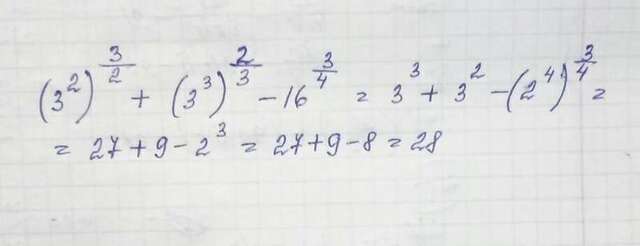 (3²)^(3/2) + (3³)^(2/3) − 16^(3/4) = 3³ + 3² − (2⁴)^(3/4) =
= 27 + 9 − 2³ = 27 + 9 − 8 = 28